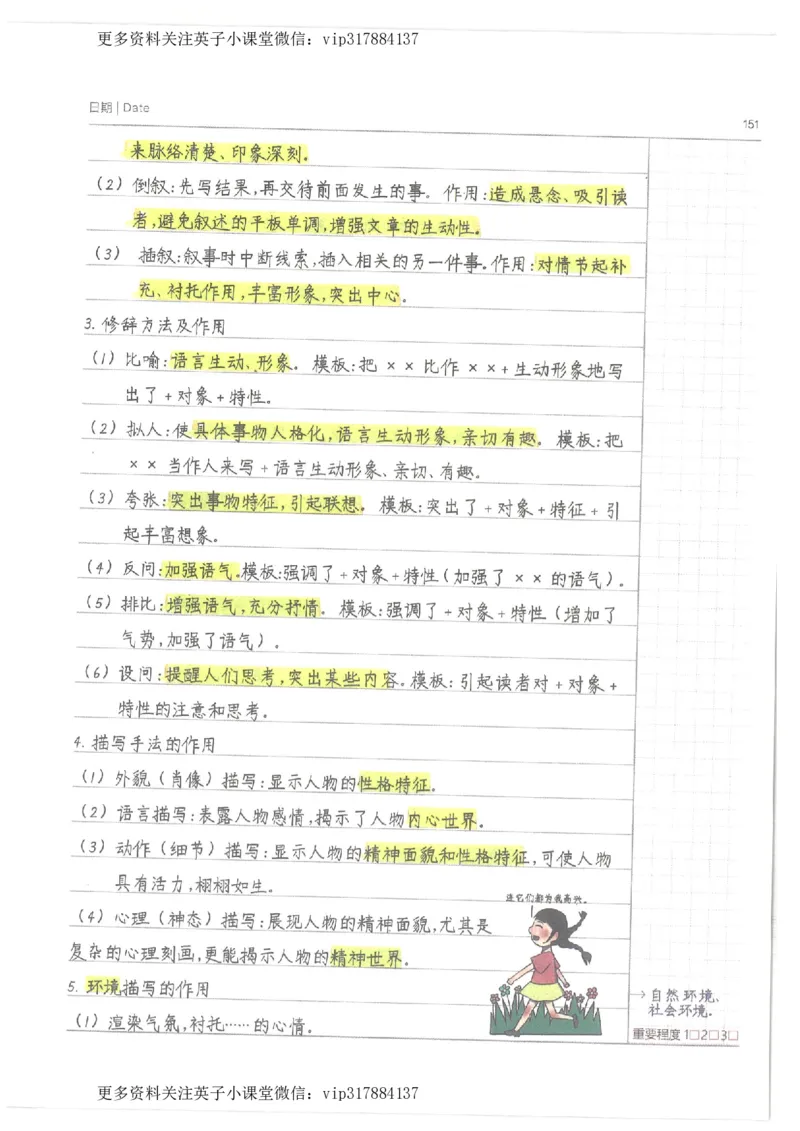 更多资料关注英子小课堂微信：vip317884137
日期 | Date
151
来脉络清楚、印象深刻。
（2）倒叙：先写结果，再交待前面发生的事。作用：造成悬念、吸引读
者，避免叙述的平板单调，增强文章的生动性。
（3） 插叙：叙事时中断线索，插入相关的另一件事。作用：对情节起补
充、衬托作用，丰富形象，突出中心。
3. 修辞方法及作用
（1）比喻：语言生动、形象。模板：把 ×× 比作 ××+生动形象地写
出了+对象+特性。
（2）拟人：使具体事物人格化，语言生动形象，亲切有趣。模板：把
×× 当作人来写+语言生动形象、亲切、有趣。
（3）夸张：突出事物特征，引起联想。模板：突出了+对象+特征+引
起丰富想象。
（4）反问：加强语气。模板：强调了+对象+特性（加强了 ×× 的语气）。
（5）排比：增强语气，充分抒情。模板：强调了+对象+特性（增加了
气势，加强了语气）。
（6）设问：提醒人们思考，突出某些内容。模板：引起读者对+对象+
特性的注意和思考。
4. 描写手法的作用
（1）外貌（肖像）描写：显示人物的性格特征。
（2）语言描写：表露人物感情，揭示了人物内心世界。
（3）动作（细节）描写：显示人物的精神面貌和性格特征，可使人物
具有活力，栩栩如生。
连它们都为我高兴。
（4）心理（神态）描写：展现人物的精神面貌，尤其是
复杂的心理刻画，更能揭示人物的精神世界。
5. 环境描写的作用
→自然环境、
社会环境。
（1）渲染气氛，衬托……的心情。
重要程度 1□2□3□
更多资料关注英子小课堂微信：vip317884137